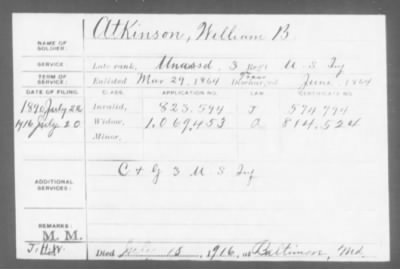 NAME OF SOLDIER: Atkinson, William B
SERVICE: Late rank, Unassd, 3 Reg't U.S. Inf
TERM OF SERVICE: Enlisted Mar 29, 1864 Discharged June, 1864
DATE OF FILING. CLASS. APPLICATION NO. LAW. CERTIFICATE NO.
1890 July 22 Invalid, 823.594 J 574794
1916 July 20 Widow, 1.069.453 a 814.524
Minor,
ADDITIONAL SERVICES: C & G 3 U.S. Inf
REMARKS:
M. M.
Died July 15, 1916, at Baltimore, Md.